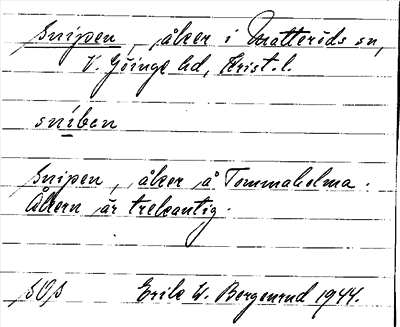 Snipen, åker i Matteröds sn,
V. Göinge hd, Krist. l.
sniban
Snipen, åker å Tommaholma.
Åkern är trekantig.
SOS Erik W. Bergenrud 1944.